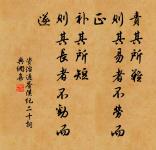 責其所難
則其易者不勞而
正
補其所短
則其長者不勤而
遂
資治通鑑漢紀二十